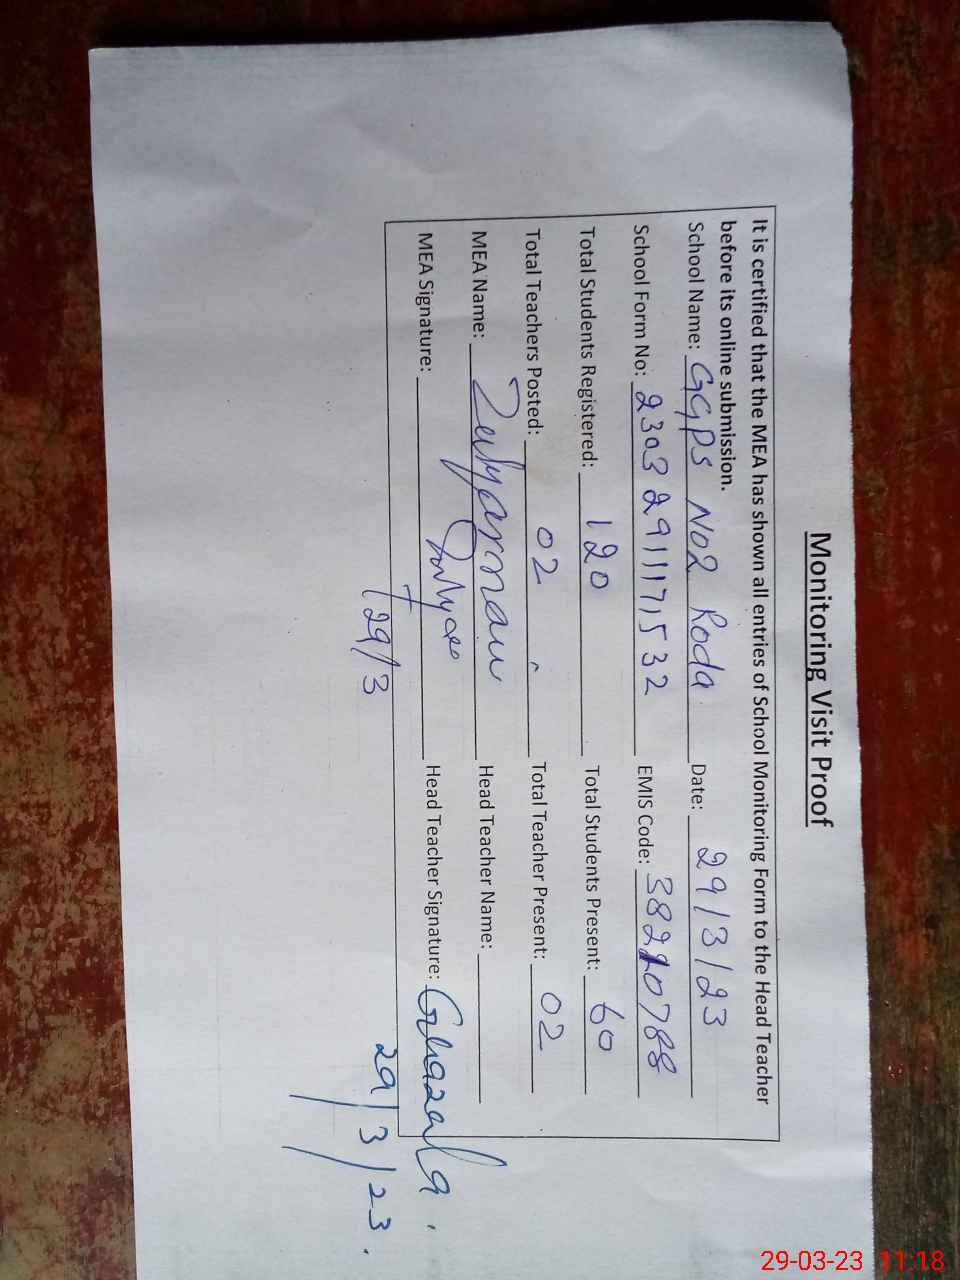 Monitoring Visit Proof
It is certified that the MEA has shown all entries of School Monitoring Form to the Head Teacher
before its online submission.
School Name: GGPS No2 Roda Date: 29/3/23
School Form No: 2303 2911171532 EMIS Code: 38210788
Total Students Registered: 120 Total Students Present: 60
Total Teachers Posted: 02 Total Teacher Present: 02
MEA Name: Head Teacher Name:
MEA Signature: Head Teacher Signature: Ghazala
29/3 29/3/23.
29-03-23 11:18